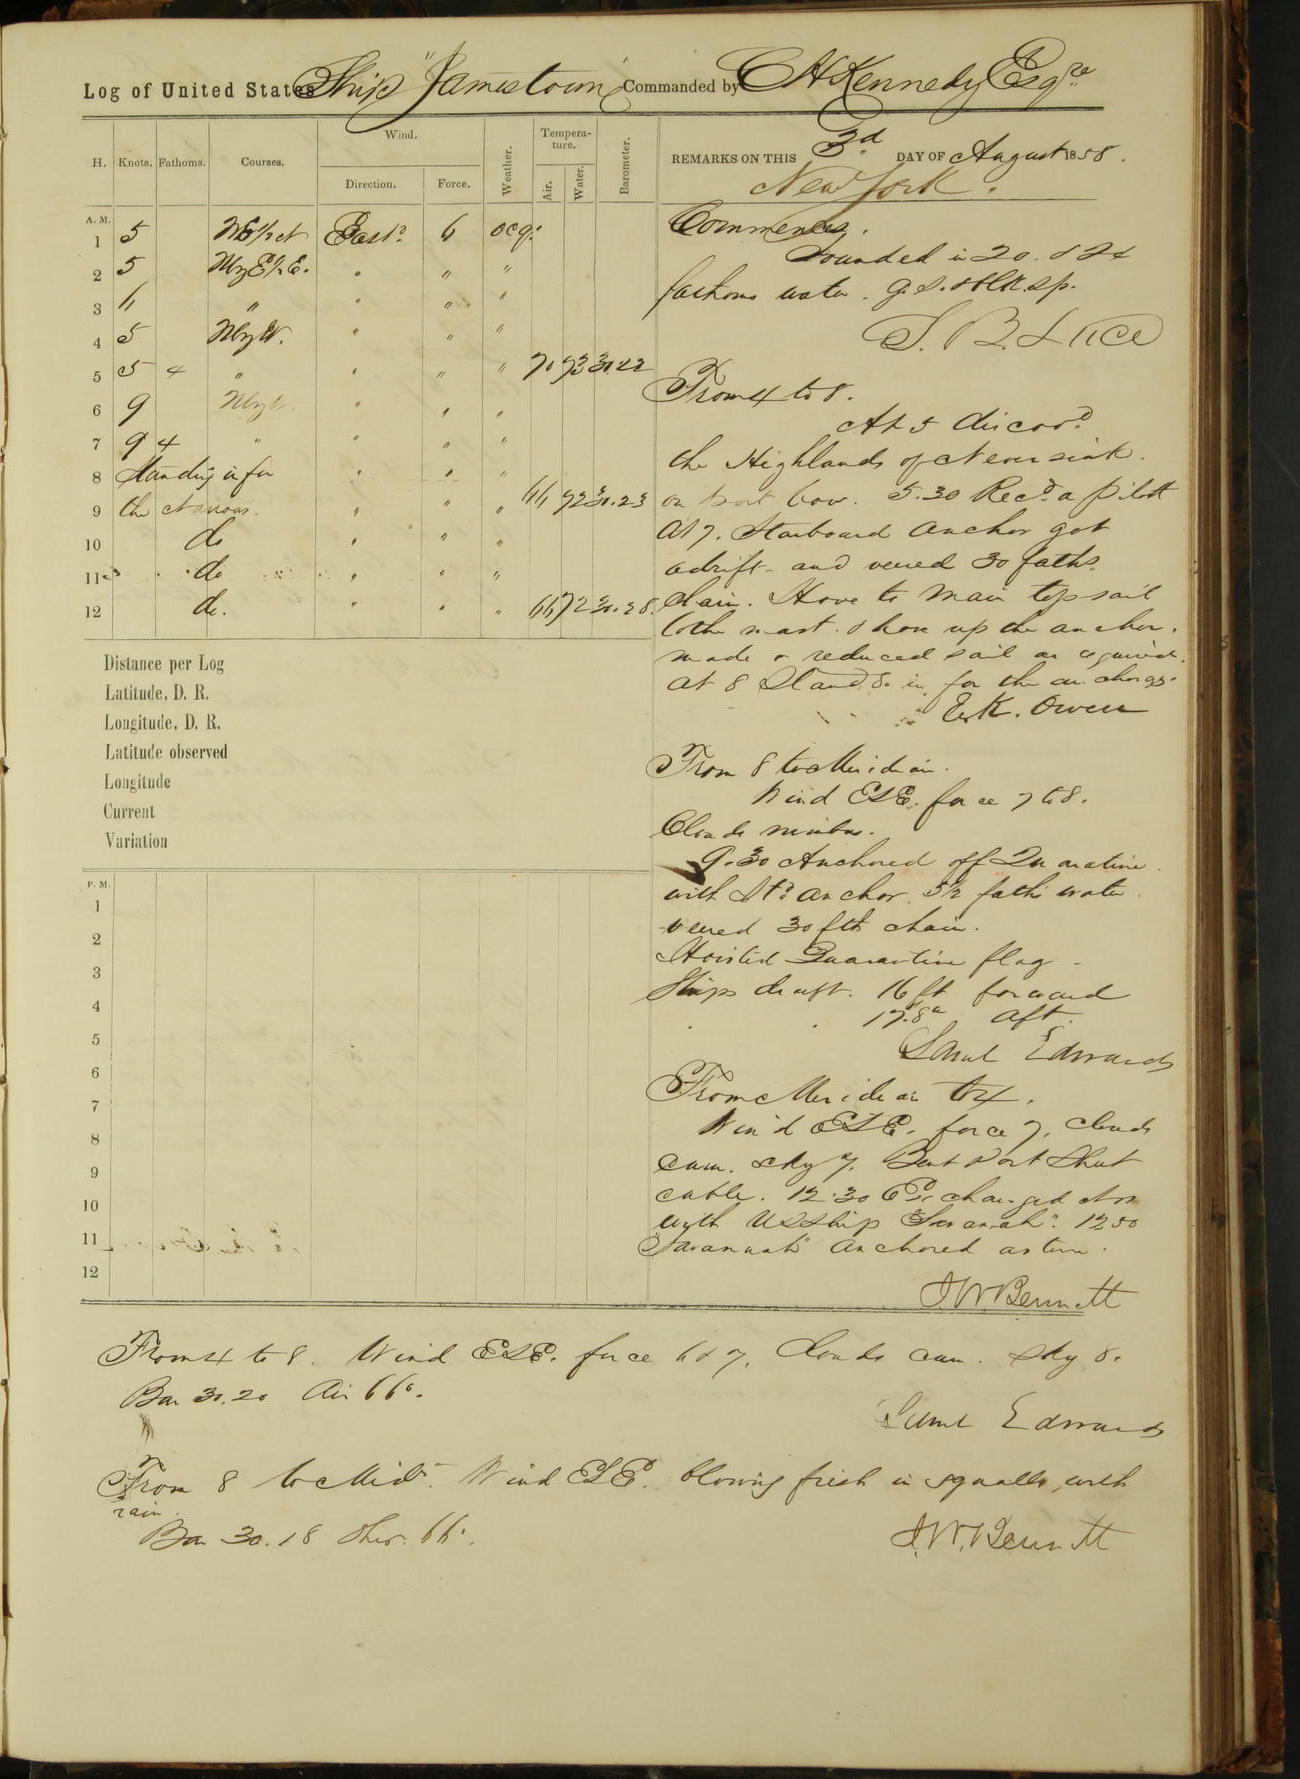 Log of United States Ship "Jamestown" Commanded by C H Kennedy Esqre
H. Knots. Fathoms. Courses. Wind. Direction. Force. Weather. Tempera-ture. Air. Water. Barometer.
REMARKS ON THIS 3d DAY OF August 1858.
New York.
A. M.
1 5 East d 6 ocq.
2 5 NbyE½E. " " "
3 6 " " " "
4 5 NbyW. " " "
5 5 4 " " " " 70 73 30.22
6 9 NbyW. " " "
7 9 4 " " " "
8 Standing in for " " "
9 the Narrows. " " " 66 72 30.23
10 do " " "
11 do " " "
12 do. " " " 66 72 30.28
Distance per Log
Latitude, D. R.
Longitude, D. R.
Latitude observed
Longitude
Current
Variation
P. M.
1
2
3
4
5
6
7
8
9
10
11
12
Commences.
Sounded in 20. & 24
fathoms water. g.s. & blk. sp.
S. B. Luce
From 4 to 8.
At 5 discovd
the Highlands of Neversink.
on port bow. 5.30 Recd a pilot
At 7. Starboard anchor got
adrift and veered 30 faths
chain. Hove to Main topsail
to the mast. & hove up the anchor.
made & reduced sail as required.
At 8 Standg in for the anchorage.
E. K. Owen
From 8 to Meridian.
Wind ESE. force 7 to 8.
Clouds nimbus.
9.30 Anchored off Quarantine
with Stbd anchor. 5½ faths water.
veered 30 fth chain.
Hoisted Quarantine flag
Ships draft. 16 ft forward
17.8in aft.
Saml Edwards
From Meridian to 4.
Wind ESE. force 7. clouds
cum. sky 7. Bent Port Sheet
cable. 12.30 Exchanged Nos
with US Ship "Savannah". 12.50
"Savannah" anchored astern.
J W Bennett
From 4 to 8. Wind ESE. force 6 & 7. Clouds cum. sky 8.
Bar 30.20 Air 66°.
Saml Edwards
From 8 to Midt. Wind ESE. blowing fresh in squalls, with
rain.
Bar 30.18 Ther. 66°.
J. W. Bennett